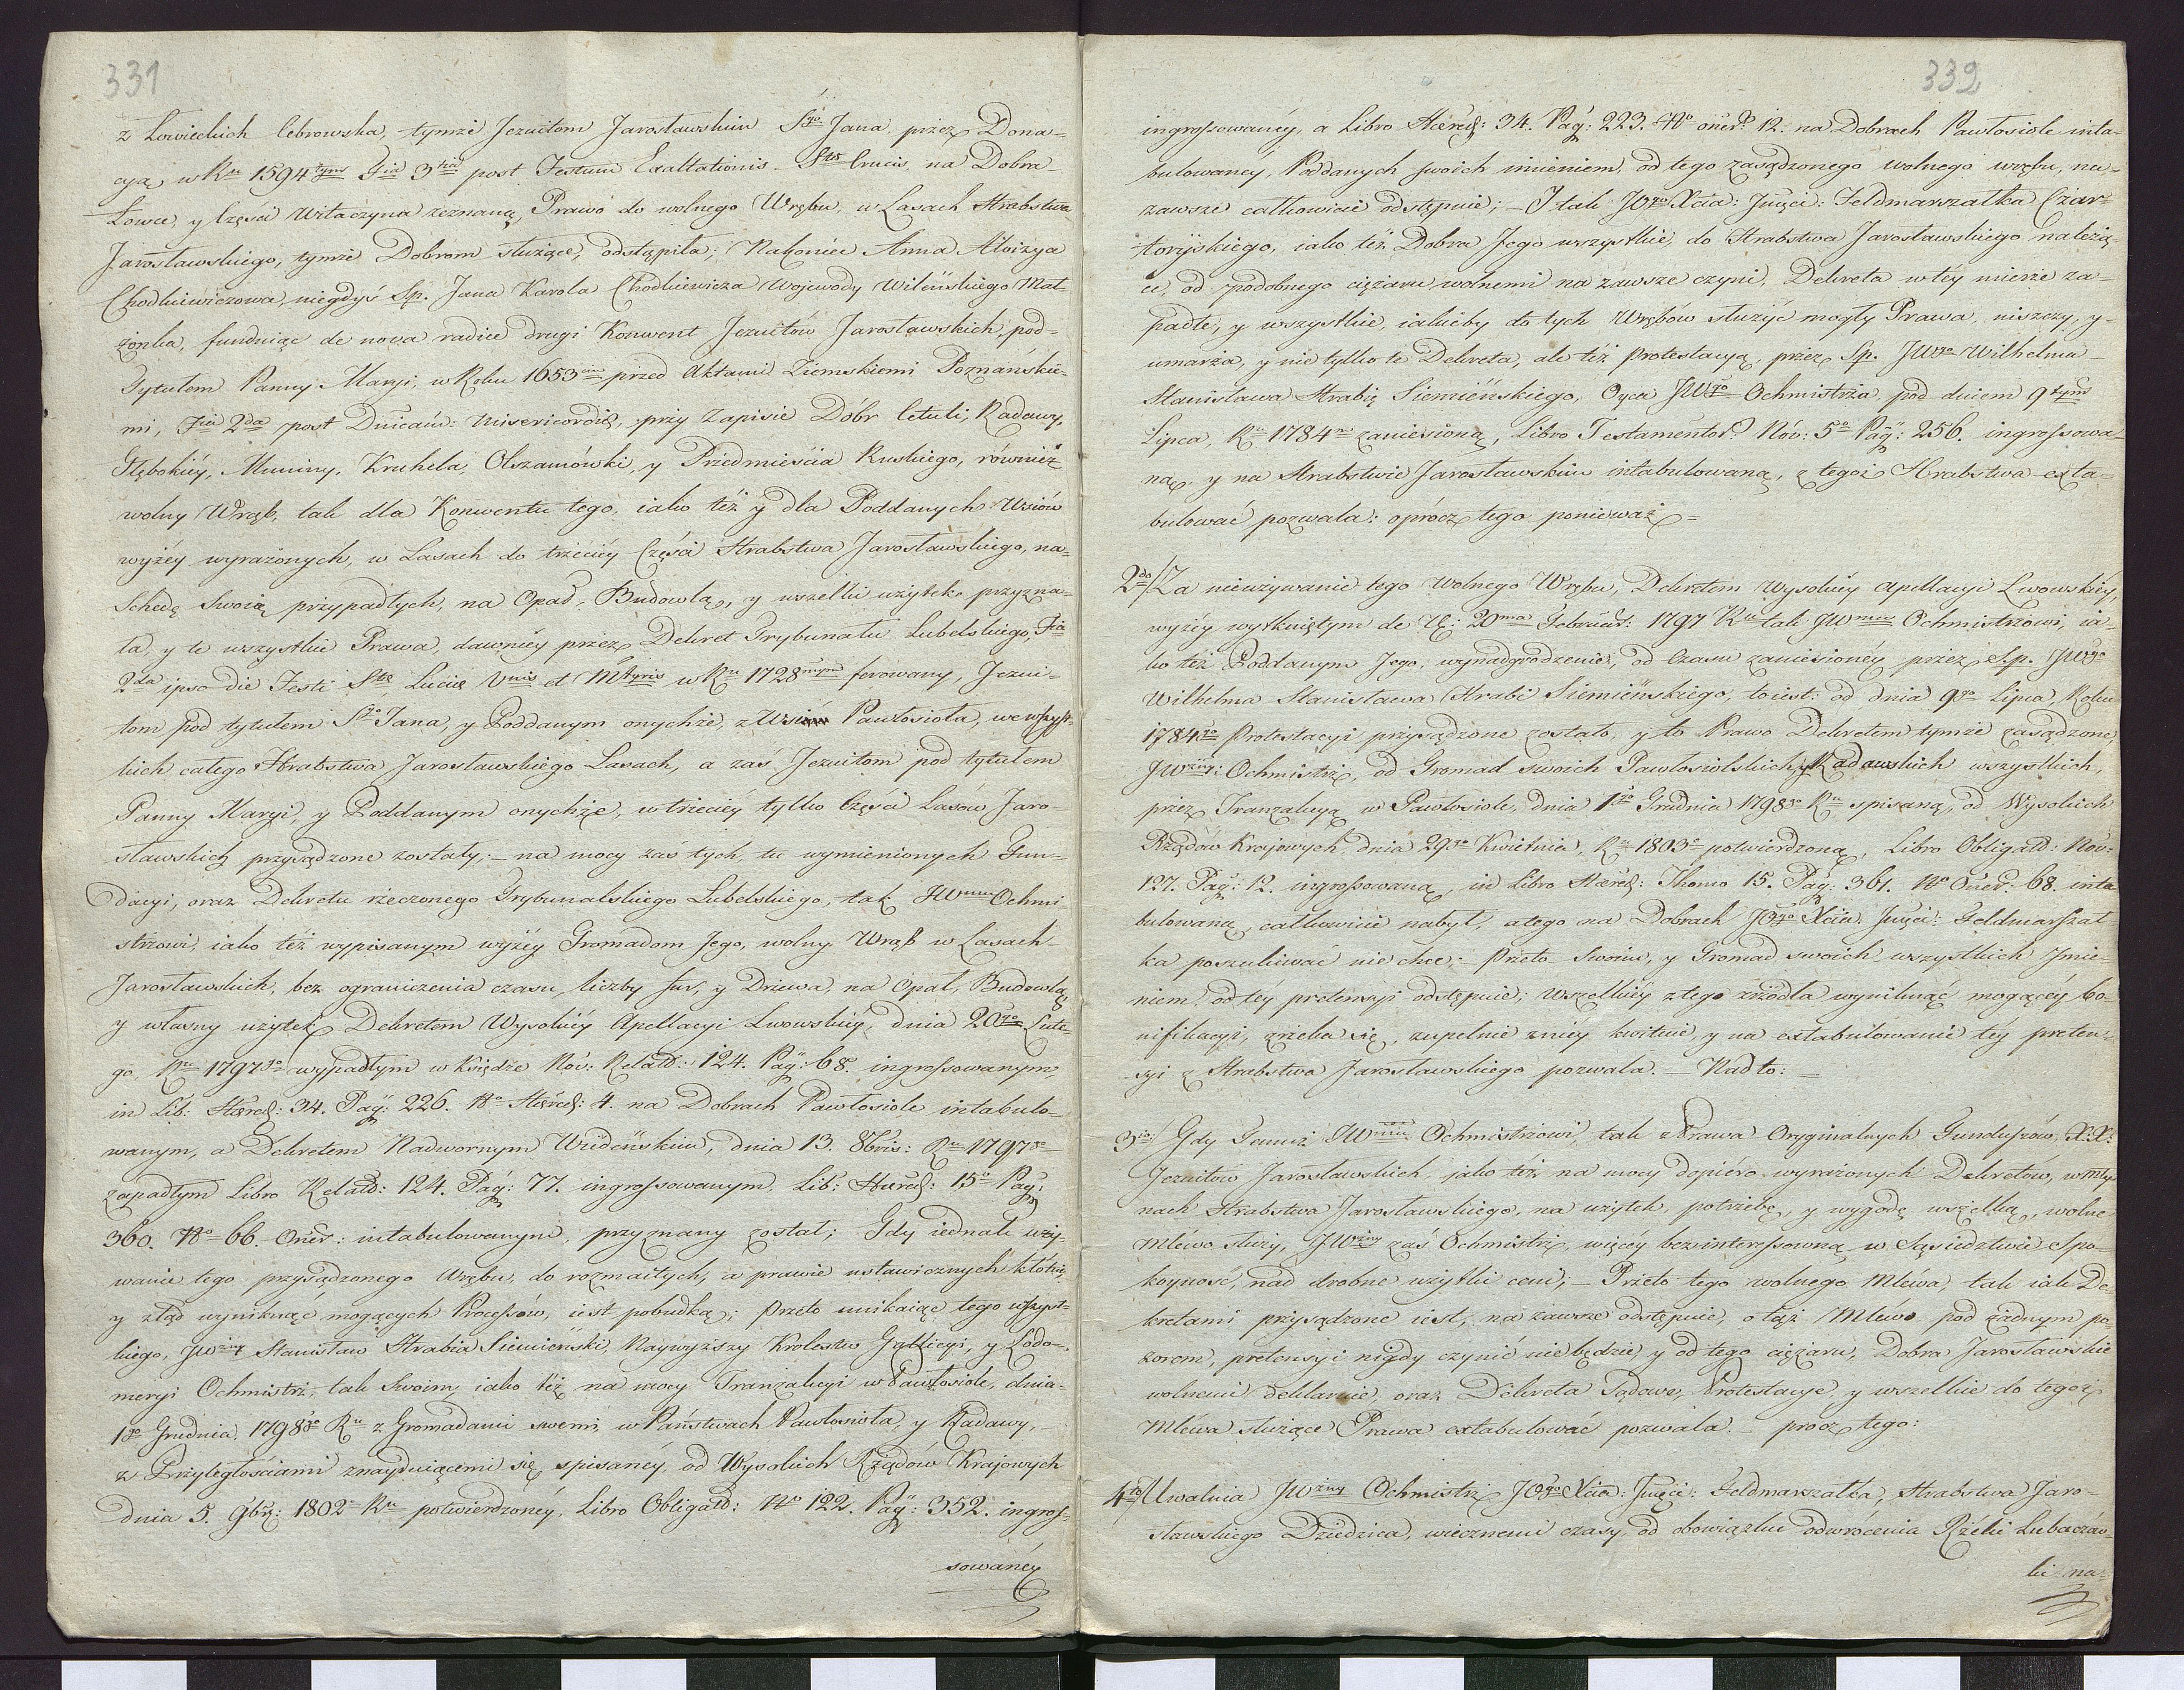 331
z Łowieckich Cebrowska, tymże Jezuitom Jarosławskim Sgo Jana, przez Dona-
cyą w Ru 1594tym Fia 3tia post Festum Exaltationis Stæ Crucis, na Dobra
Łowce, y Części Witaczyna zeznaną, Prawo do wolnego Wrębu, w Lasach Hrabstwa
Jarosławskiego, tymże Dobrom służące, odstąpiła; Nakoniec Anna Aloizya
Chodkiewiczowa, niegdyś Sp. Jana Karola Chodkiewicza Wojewody Wileńskiego Mał-
żonka, funduiąc de nova radice drugi Konwent Jezuitów Jarosławskich, pod
Tytułem Panny Maryi, w Roku 1653cim przed Aktami Ziemskiemi Poznańskie-
mi, Fia 2da post Dnicam: Misericordiæ, przy Zapisie Dóbr Cetuli, Radawy,
Głębokiéy, Muniny, Kruhela, Olszamówki, y Przedmieścia Ruskiego, również
wolny Wrąb, tak dla Konwentu tego, iako też y dla Poddanych Wsiów
wyżéy wyrażonych, w Lasach do trzeciéy Części Hrabstwa Jarosławskiego, na
Schedę Swoią przypadłych, na Opał, Budowlą, y wszelki użytek, przyzna-
ła, y te wszystkie Prawa, dawniéy przez Dekret Trybunału Lubelskiego, Fia
2da ipso die Festi Stæ Luciæ Vnis et Mtyris w Ru 1728mym ferowany, Jezui-
tom pod tytułem Sgo Jana, y Poddanym onychże, z Wsi Pawłosioła, we wszyst-
kich całego Hrabstwa Jarosławskiego Lasach, a zaś Jezuitom pod tytułem
Panny Maryi, y Poddanym onychże, w trzeciéy tylko Części Lasów Jaro-
sławskich przysądzone zostały; – na mocy zaś tych, tu wymienionych Fun-
dacyi, oraz Dekretu rzeczonego Trybunalskiego Lubelskiego, tak JWmu Ochmi-
strzowi, iako też wypisanym wyżéy Gromadom Jego, wolny Wrąb w Lasach
Jarosławskich, bez ograniczenia czasu, liczby fur, y Drzewa, na Opał, Budowlą
y własny użytek Dekretem Wysokiéy Apellacyi Lwowskiéy, dnia 20go Lute-
go Ru 1797go wypadłym w Księdze Nov: Relatt: 124. Pag: 68. ingrossowanym,
in Lib: Hæred: 34. Pag: 226. No Hæred: 4. na Dobrach Pawłosiole intabulo-
wanym, a Dekretem Nadwornym Wiedeńskim, dnia 13. 8bris: Ru 1797go
zapadłym Libro Relatt: 124. Pag: 77. ingrossowanym. Lib: Hæred: 15o Pag:
360. No 66. Oner: intabulowanym, przyznany został; Gdy iednak uży-
wanie tego przysądzonego Wrębu, do rozmaitych, a prawie ustawicznych kłótni,
y ztąd wyniknąć mogących Procesów, iest pobudką; Przeto unikaiąc tego wszyst-
kiego, JWżny Stanisław Hrabia Siemieński, Naywyższy Królestw Gallicyi, y Lodo-
meryi Ochmistrz, tak Swoim, iako też na mocy Tranzakcyi w Pawłosiole, dnia
1go Grudnia, 1798go Ru z Gromadami swemi, w Państwach Pawłosioła, y Radawy,
z Przyległościami znayduiącemi się, spisanéy, od Wysokich Rządów Krajowych
dnia 5. 9bris: 1802o Ru potwierdzonéy, Libro Obligatt: No 122. Pag: 352. ingros-
sowanéy
332
ingrossowanéy, a Libro Hæred: 34. Pag: 223. No oner: 12. na Dobrach Pawłosiole inta-
bulowanéy, Poddanych swoich imieniem, od tego zasądzonego wolnego wrębu, na-
zawsze całkowicie odstępuie; – I tak JOgo Xcia: Jmęci: Feldmarszałka Czar-
toryskiego, iako też Dobra Jego wszystkie, do Hrabstwa Jarosławskiego należą-
ce, od podobnego ciężaru, wolnemi na zawsze czyni, Dekreta w téy mierze za-
padłe, y wszystkie, iakieby do tych Wrębów służyć mogły Prawa, niszczy, y
umarza, y nie tylko te Dekreta, ale też Protestacyą, przez Sp. JWgo Wilhelma
Stanisława Hrabię Siemieńskiego, Oyca JWgo Ochmistrza, pod dniem 9tym
Lipca, Ru 1784o zaniesioną, Libro Testamentor: Nov: 5o Pag: 256. ingrossowa-
ną, y na Hrabstwie Jarosławskim intabulowaną, z tegoż Hrabstwa exta-
bulować pozwala: oprócz tego ponieważ =
2do/ Za nieużywanie tego Wolnego Wrębu, Dekretem Wysokiéy Apellacyi Lwowskiéy,
wyżéy wytkniętym de V: 20ma Februar: 1797 Ru tak JWmu Ochmistrzowi, ia-
ko też Poddanym Jego, wynadgrodzenie, od Czasu zaniesionéy przez Sp. JWgo
Wilhelma Stanisława Hrabi Siemieńskiego, to iest: od dnia 9go Lipca, Roku
1784go Protestacyi przysądzone zostało, y to Prawo Dekretem tymże zasądzone,
JWżny: Ochmistrz, od Gromad swoich Pawłosiolskich, y Radawskich wszystkich,
przez Tranzakcyą w Pawłosiole, dnia 1go Grudnia 1798go Ru spisaną, od Wysokich
Rządów Krajowych dnia 29go Kwietnia, Ru 1803o potwierdzoną, Libro Obligatt: Nov:
127. Pag: 12. ingrossowaną, in Libro Hæred: Thomo 15. Pag: 361. No Oner: 68. inta
bulowaną, całkowicie nabył, a tego na Dobrach JOgo Xcia Jmęci: Feldmarszał
ka poszukiwać nie chce; – Przeto Swoim, y Gromad swoich wszystkich Jmie-
niem, od téy pretensyi odstępuie; wszelkiéy z tego źrzódła wyniknąć mogącéy bo-
nifikacyi, zrzeka się, zupełnie z niey kwituie, y na extabulowanie téy preten-
syi z Hrabstwa Jarosławskiego pozwala. – Nadto: –
3tio/ Gdy Temuż JWmu Ochmistrzowi, tak z Prawa Oryginalnych Funduszów, X.X.
Jezuitów Jarosławskich, jako też na mocy dopiéro wyrażonych Dekretów, w Mły-
nach Hrabstwa Jarosławskiego, na użytek, potrzebę, y wygodę wszelką, wolne
Mléwo służy, JWżny zaś Ochmistrz, więcéy bezinteressowną w Sąsiedztwie Spo-
koyność, nad drobne użytki ceni; – Przeto tego wolnego Mléwa, tak iak De-
kretami przysądzone iest, na zawsze odstępuie, o tąż Mléwo pod żadnym po-
zorem, pretensyi nigdy czynić nie będzie, y od tego ciężaru, Dobra Jarosławskie
wolnemi deklaruie, oraz Dekreta Sądowe, Protestacye, y wszelkie do tegoż
Mléwa służące Prawa extabulować pozwala. – prócz tego:
4to/ Uwalnia JWżny Ochmistrz JOgo Xcia: Jmęci: Feldmarszałka, Hrabstwa Jaro-
sławskiego Dziedzica, wiecznemi czasy, od obowiązku odwrócenia Rzéki Lubaczów-
ki na-